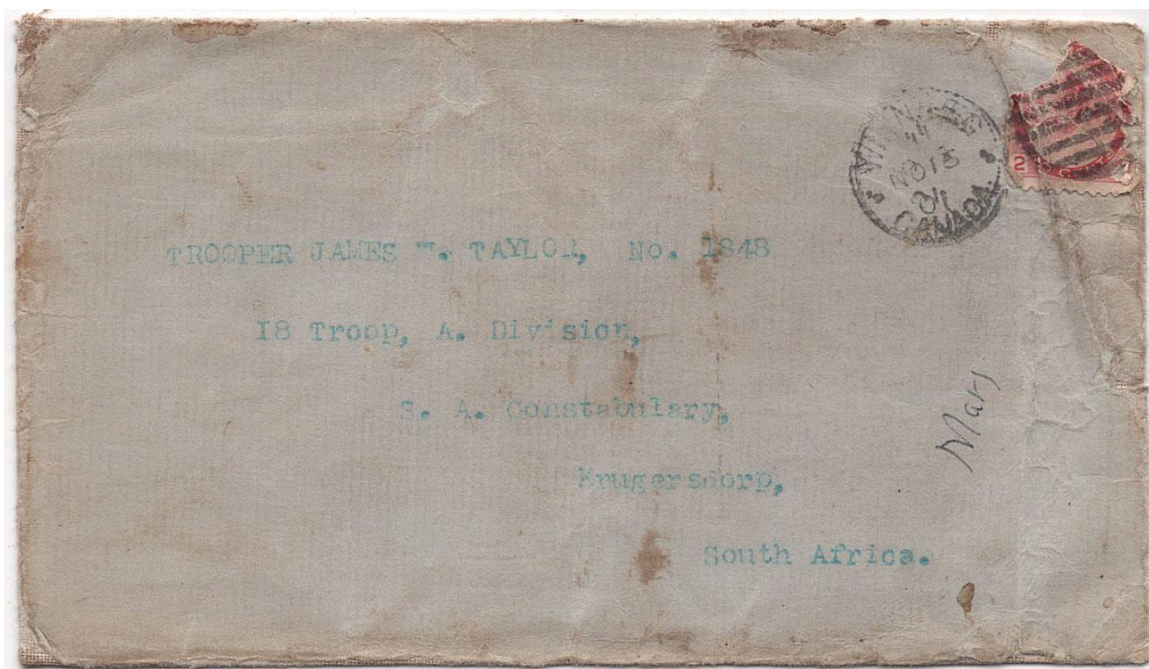 WINNIPEG
NO 13
04
CANADA
2 CENTS
TROOPER JAMES W. TAYLOR, No. 1848
I8 Troop, A. Division,
S. A. Constabulary,
Krugersdorp,
South Africa.
Mary